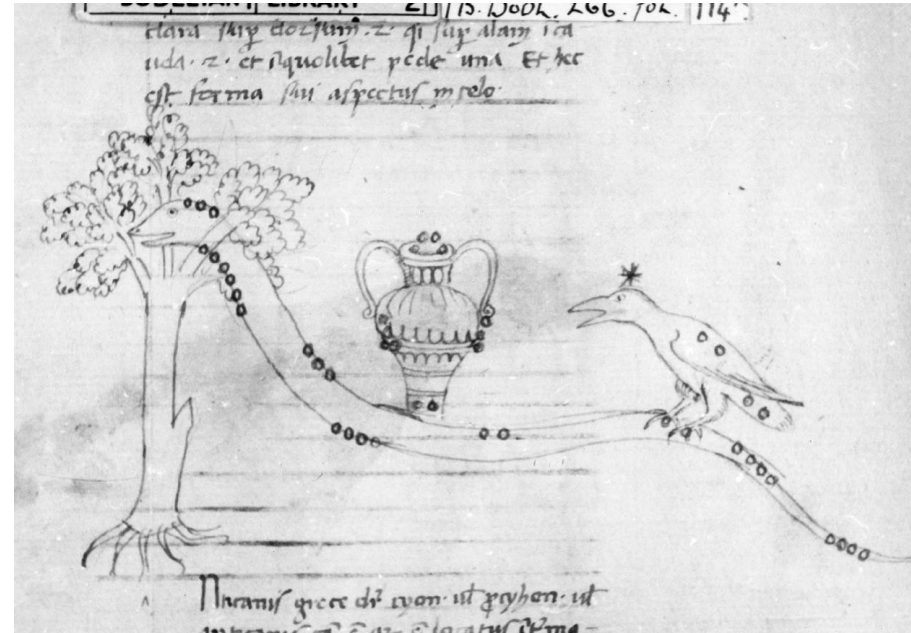 BODLEIAN LIBRARY
MS. Bodl. 266. fol. 114
clara sup dorsum .2. qi sup alam i ca
uda .2. et i quolibet pede una Et hec
est forma sui aspectus in celo.
Nticanis grece dr cyon ul procyhon ul